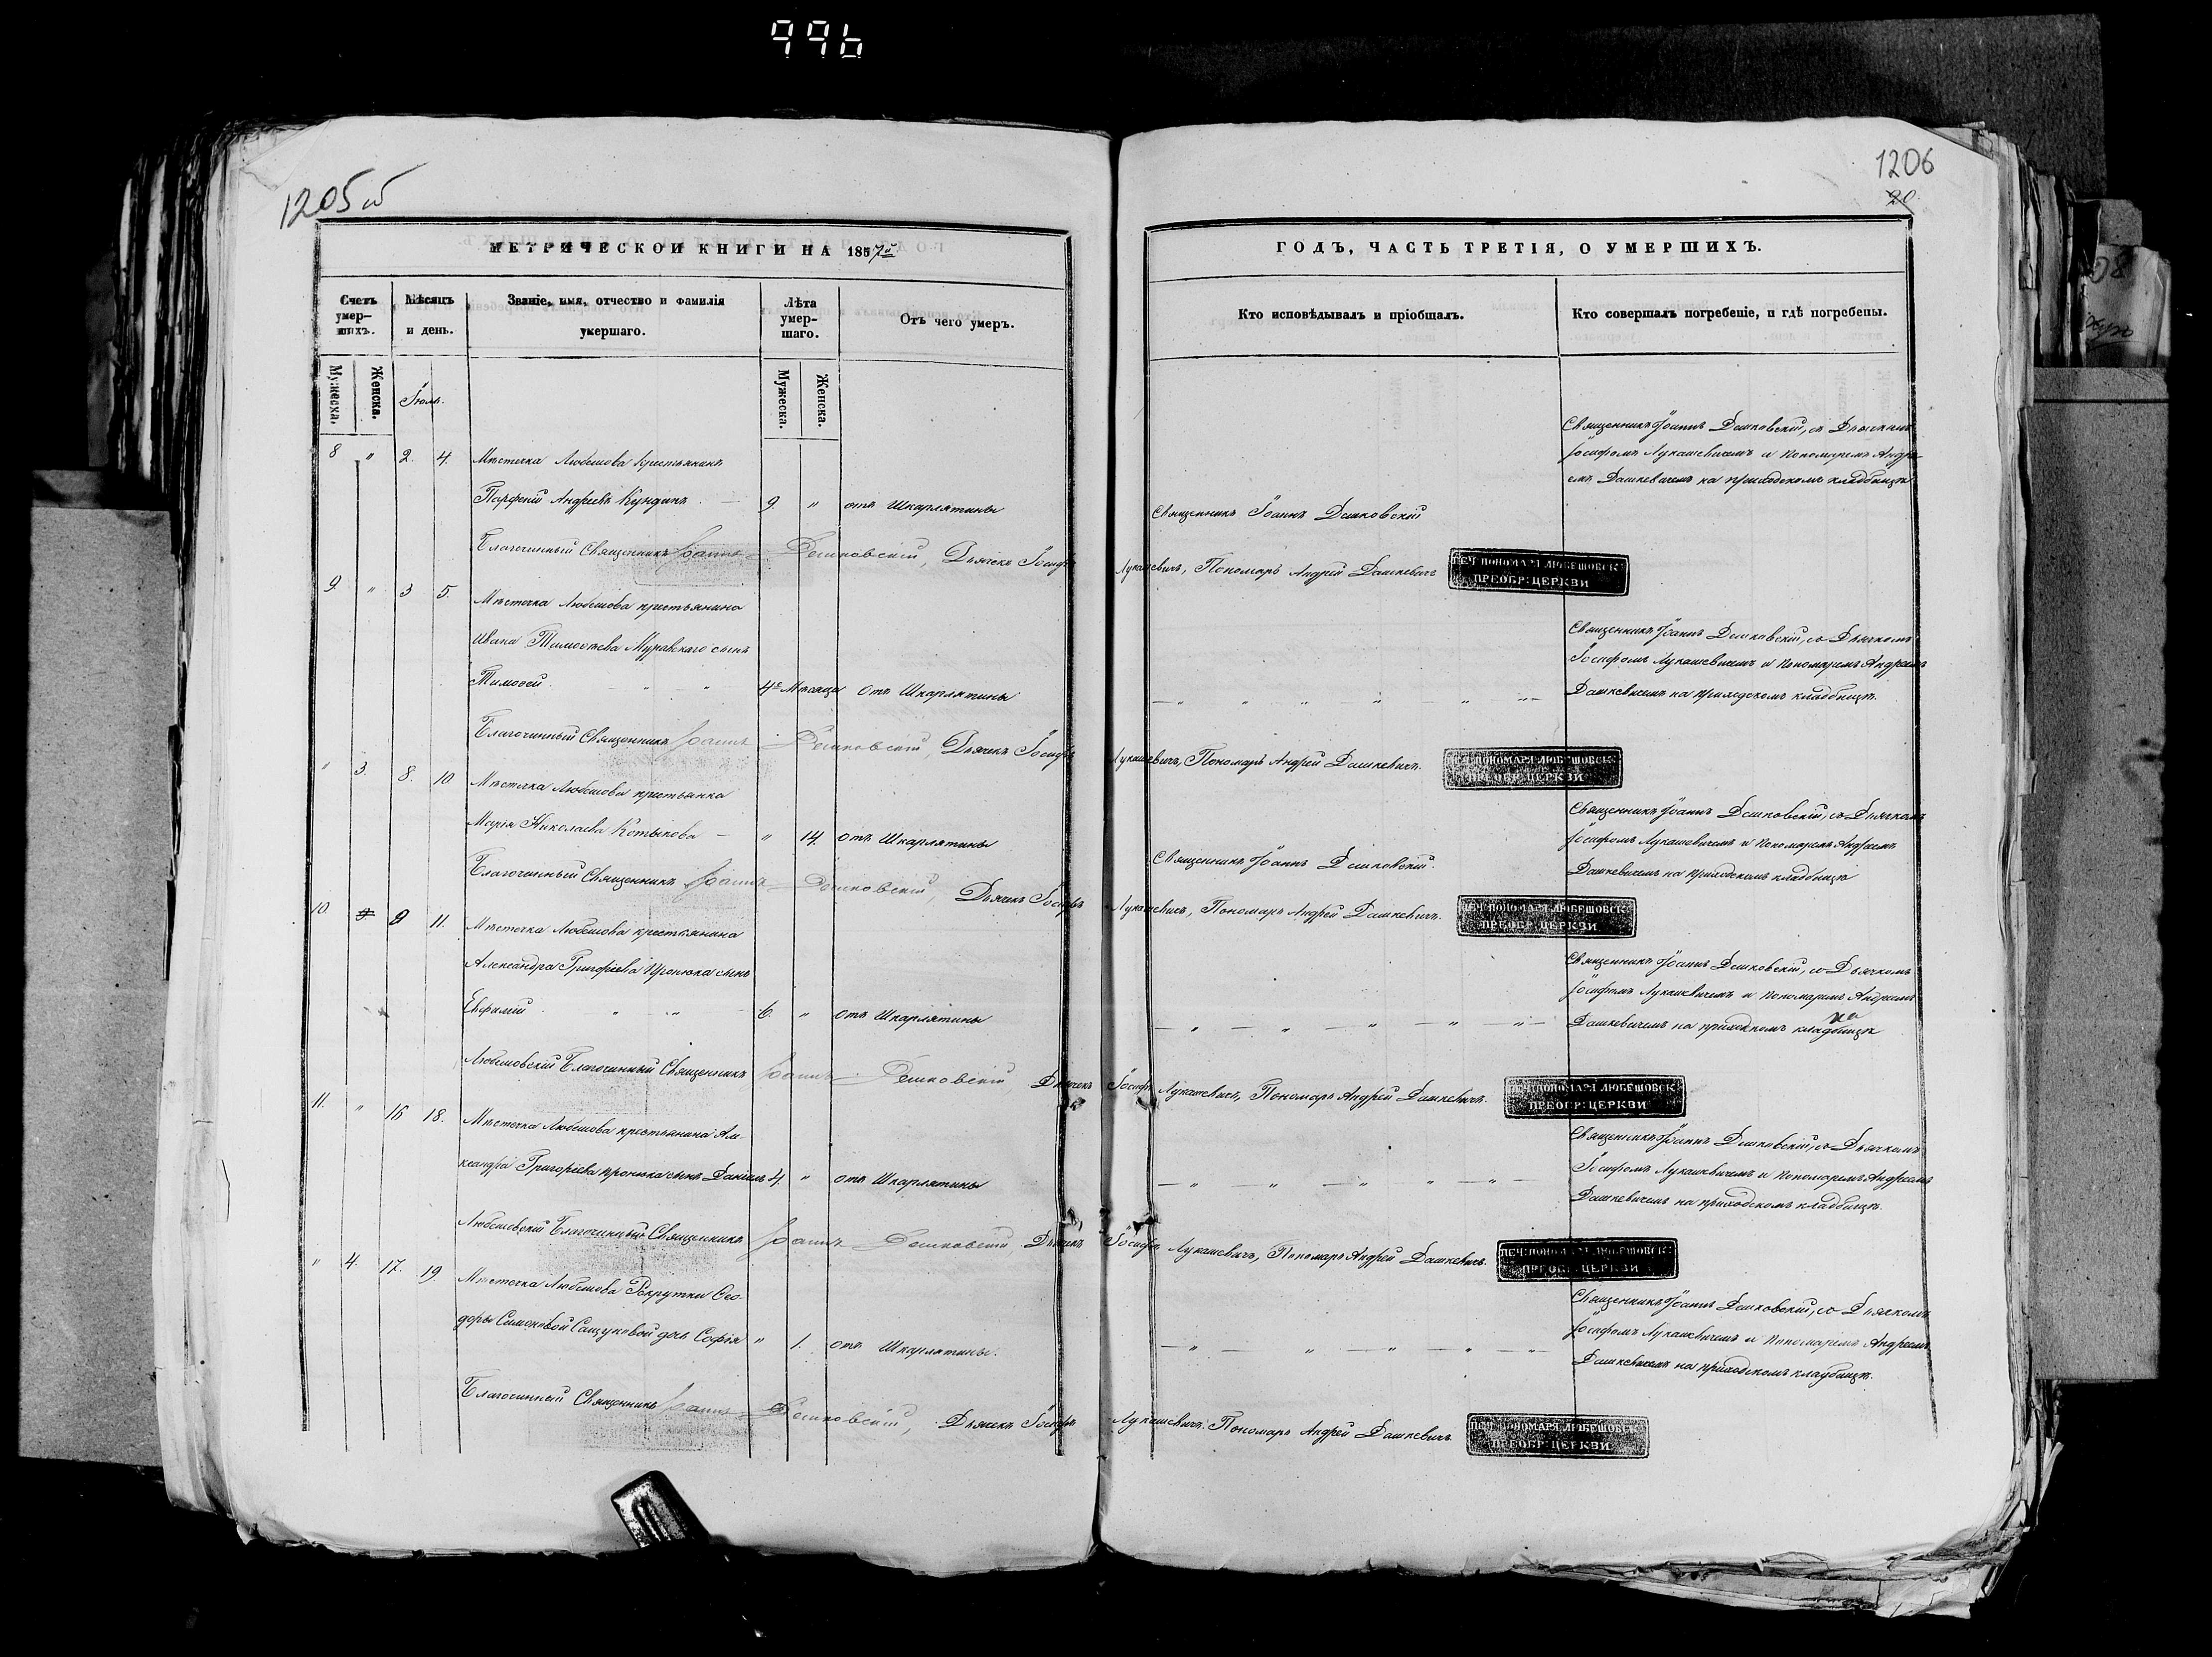 996
1205 об
1206
20.
МЕТРИЧЕСКОЙ КНИГИ НА 1857й
ГОДЪ, ЧАСТЬ ТРЕТІЯ, О УМЕРШИХЪ.
Счетъ умер-шихъ.
Мѣсяцъ и день.
Званіе, имя, отчество и фамилія умершаго.
Лѣта умер-шаго.
Отъ чего умеръ.
Кто исповѣдывалъ и пріобщалъ.
Кто совершалъ погребеніе, и гдѣ погребены.
Мужеска.
Женска.
Мужеска.
Женска.
Іюль.
8 " 2. 4. Мѣстечка Любешова крестьянинъ
Парфеній Андреевъ Кундикъ 9. " отъ Шкарлятины
Священникъ Іоаннъ Дешковскій
Священникъ Іоаннъ Дешковскій, съ Дьячкомъ
Іосифомъ Лукашевичемъ и Пономаремъ Андре
емъ Дашкевичемъ на приходскомъ кладбищѣ
Благочинный Священникъ Іоаннъ Дешковскій, Дьячекъ Іосифъ Лукашевичъ, Пономарь Андрей Дашкевичъ
ПЕЧ: ПОНОМАРЯ ЛЮБЕШОВСК:
ПРЕОБР: ЦЕРКВИ
9. " 3 5. Мѣстечка Любешова крестьянина
Ивана Тимоѳѣева Муравскаго сынъ
Тимоѳей " " 4е Мѣсяца отъ Шкарлятины
Священникъ Іоаннъ Дешковскій, со Дьячкомъ
Іосифомъ Лукашевичемъ и Пономаремъ Андреемъ
Дашкевичемъ на приходскомъ кладбищѣ.
Благочинный Священникъ Іоаннъ Дешковскій, Дьячекъ Іосифъ Лукашевичъ, Пономарь Андрей Дашкевичъ.
ПЕЧ: ПОНОМАРЯ ЛЮБЕШОВСК:
ПРЕОБР: ЦЕРКВИ
" 3. 8. 10 Мѣстечка Любешова крестьянка
Марія Николаева Котыкова — " 14. отъ Шкарлятины
Священникъ Іоаннъ Дешковскій.
Священникъ Іоаннъ Дешковскій, съ Дьячкомъ
Іосифомъ Лукашевичемъ и Пономаремъ Андреемъ
Дашкевичемъ на приходскомъ кладбищѣ
Благочинный Священникъ Іоаннъ Дешковскій, Дьячекъ Іосифъ Лукашевичъ, Пономарь Андрей Дашкевичъ.
ПЕЧ: ПОНОМАРЯ ЛЮБЕШОВСК:
ПРЕОБР: ЦЕРКВИ
10. 9 11. Мѣстечка Любешова крестьянина
Александра Григоріева Пронюка сынъ
Евфимій " " 6. " отъ Шкарлятины
Священникъ Іоаннъ Дешковскій, со Дьячкомъ
Іосифомъ Лукашевичемъ и Пономаремъ Андреемъ
Дашкевичемъ на приходскомъ кладбищѣ
Любешовскій Благочинный Священникъ Іоаннъ Дешковскій Дьячекъ Іосифъ Лукашевичъ, Пономарь Андрей Дашкевичъ.
ПЕЧ: ПОНОМАРЯ ЛЮБЕШОВСК:
ПРЕОБР: ЦЕРКВИ
11. " 16 18. Мѣстечка Любешова крестьянина Ал-
ксандра Григоріева Пронюка сынъ Даніилъ 4. " отъ Шкарлятины
Священникъ Іоаннъ Дешковскій, со Дьячкомъ
Іосифомъ Лукашевичемъ и Пономаремъ Андреемъ
Дашкевичемъ на приходскомъ кладбищѣ.
Любешовскій Благочинный Священникъ Іоаннъ Дешковскій, Дьячекъ Іосифъ Лукашевичъ, Пономарь Андрей Дашкевичъ.
ПЕЧ: ПОНОМАРЯ ЛЮБЕШОВСК:
ПРЕОБР: ЦЕРКВИ
" 4. 17. 19 Мѣстечка Любешова Рекрутки Ѳео-
доры Симоновой Сащуковой дочь Софія " 1. отъ Шкарлятины.
Священникъ Іоаннъ Дешковскій, со Дьячкомъ
Іосифомъ Лукашевичемъ и Пономаремъ Андреемъ
Дашкевичемъ на приходскомъ кладбищѣ.
Благочинный Священникъ Іоаннъ Дешковскій, Дьячекъ Іосифъ Лукашевичъ. Пономарь Андрей Дашкевичъ
ПЕЧ: ПОНОМАРЯ ЛЮБЕШОВСК:
ПРЕОБР: ЦЕРКВИ